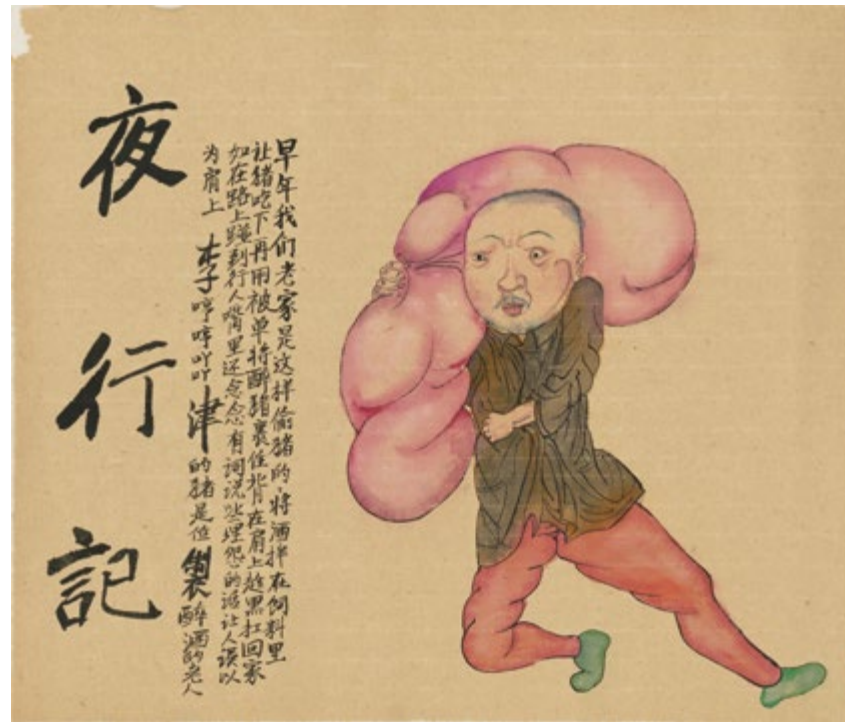 早年我们老家是这样偷猪的,将酒拌在饲料里
让猪吃下再用被单将醉猪裹住背在肩上趁黑扛回家
如在路上踫到行人嘴里还念念有词说些埋怨的话让人误以
为肩上 李 哼哼吖吖 津 的猪是位 製 醉酒的老人
夜行記